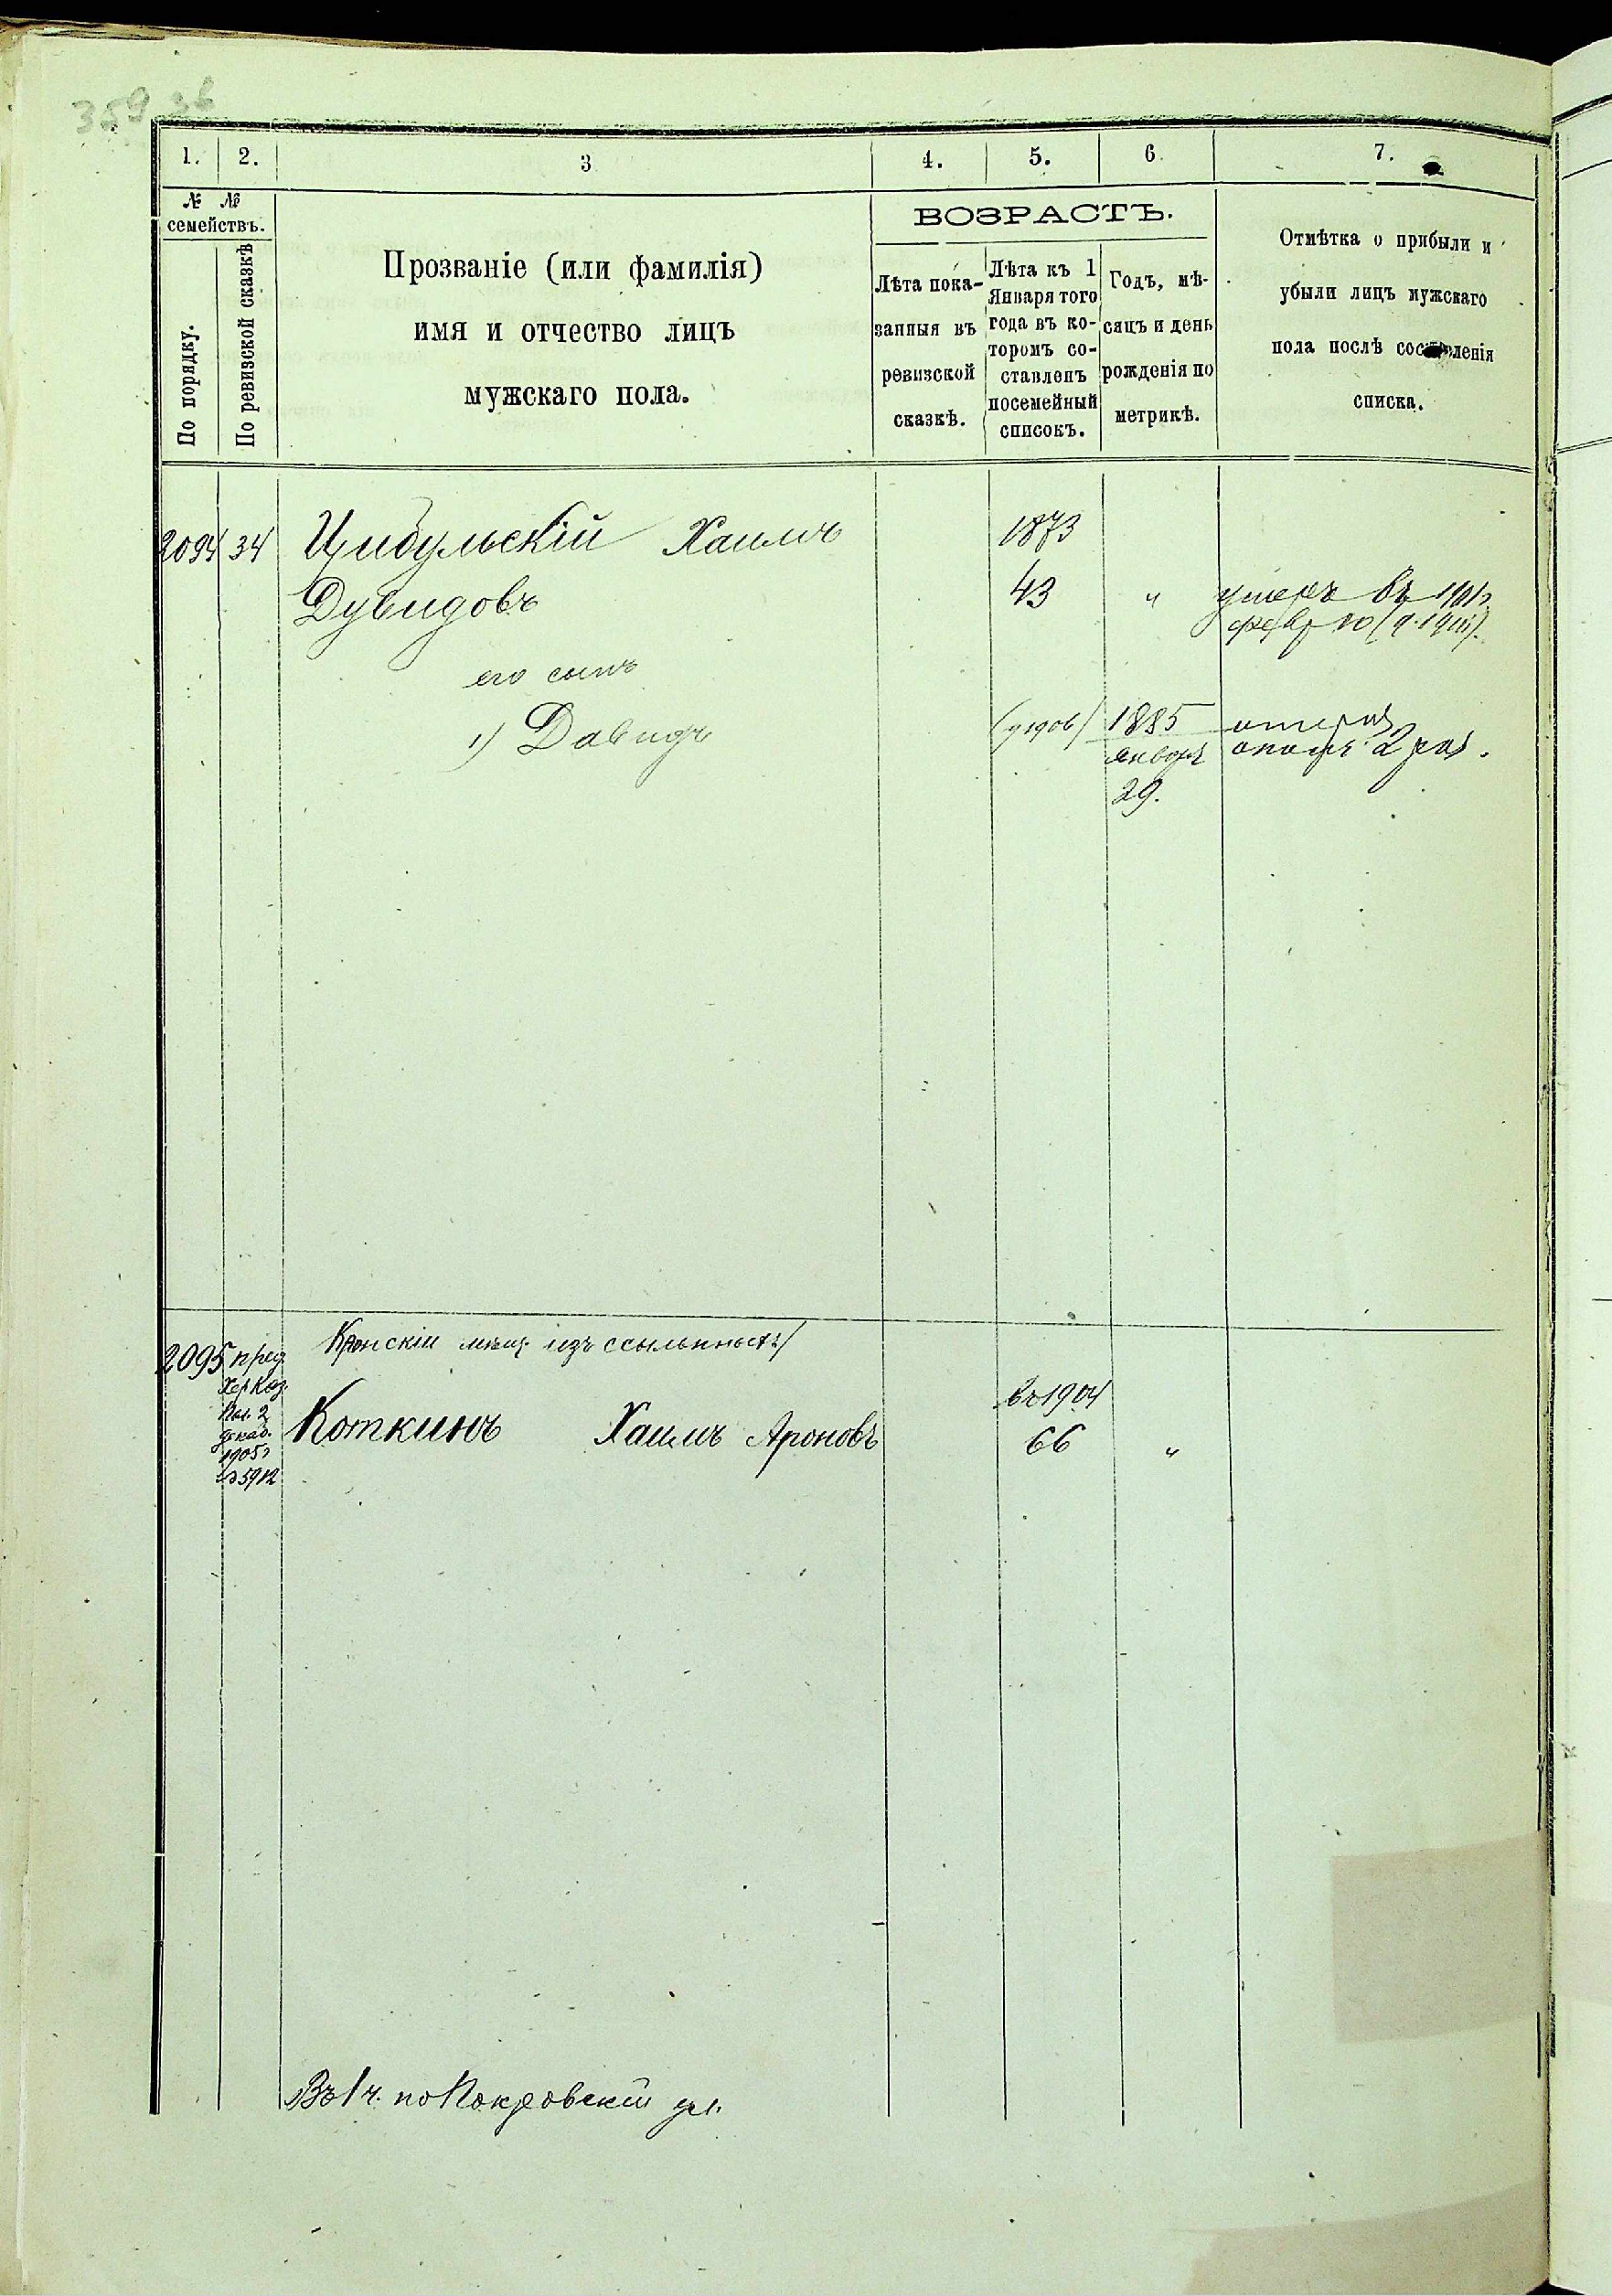 359 зв
1. 2. 3 4. 5. 6. 7.
№ №
семействъ.
По порядку.
По ревизской сказкѣ
Прозваніе (или фамилія)
имя и отчество лицъ
мужскаго пола.
ВОЗРАСТЪ.
Лѣта пока-
занныя въ
ревизской
сказкѣ.
Лѣта къ 1
Января того
года въ ко-
торомъ со-
ставленъ
посемейный
списокъ.
Годъ, мѣ-
сяцъ и день
рожденія по
метрикѣ.
Отмѣтка о прибыли и
убыли лицъ мужскаго
пола послѣ составленія
списка.
2094 34 Цибульскій Хаимъ 1873
Дувидовъ 43 " умеръ въ
его сынъ
1) Давидъ 1885
январ 2 раз.
29.
2095 пред. мѣщ. изъ ссыльныхъ)
Хер Каз.
Пал. 2 въ 1904
декаб. Коткинъ Хаимъ Ароновъ 66 "
1905г
№ 5912
Въ 1 ч. по Покровской ул.